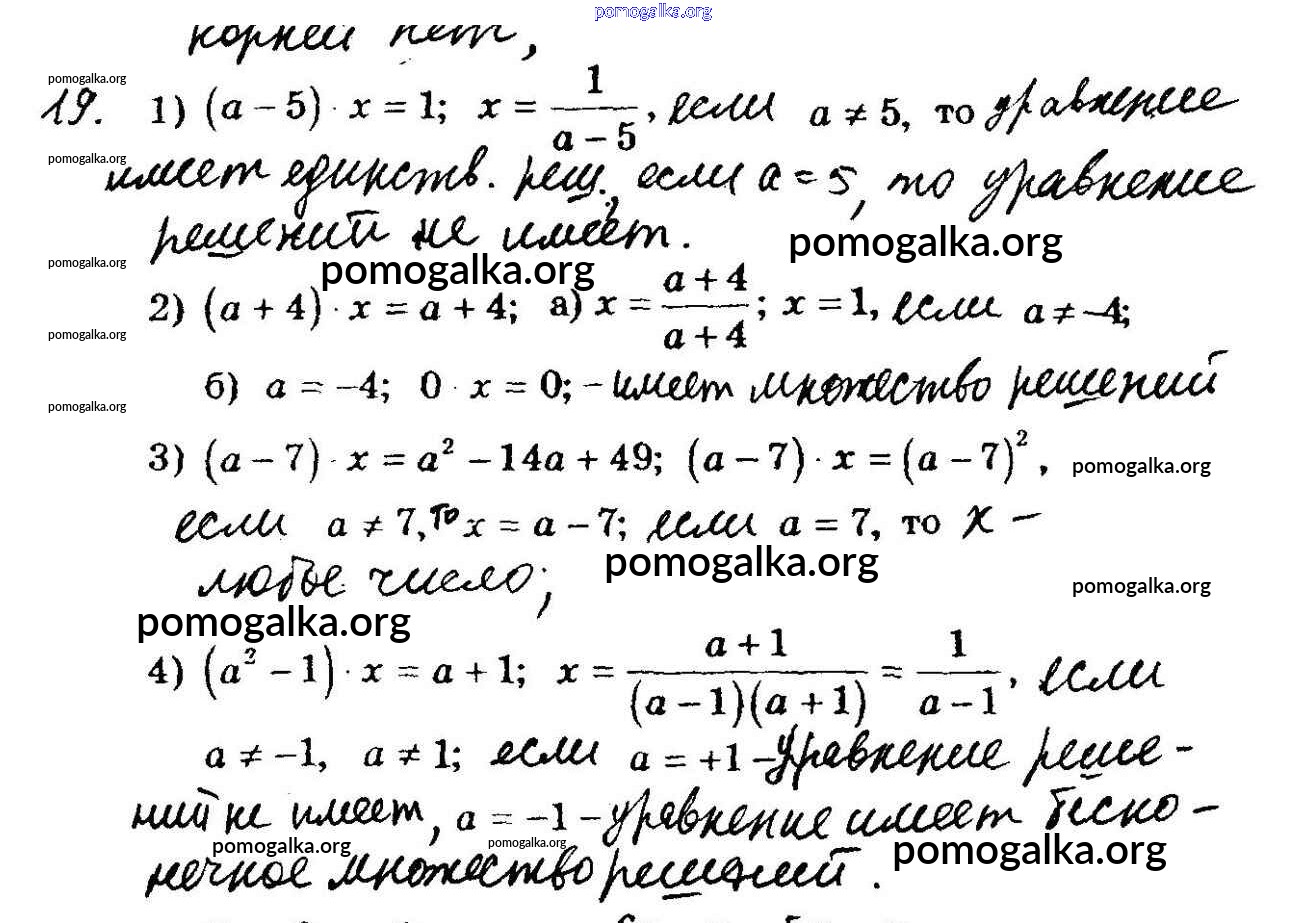 pomogalka.org
корней нет,
pomogalka.org
19. 1) (a − 5) · x = 1; x = 1/(a − 5), если a ≠ 5, то уравнение
pomogalka.org
имеет единств. реш.; если a = 5, то уравнение
решений не имеет.
pomogalka.org
pomogalka.org pomogalka.org
2) (a + 4) · x = a + 4; а) x = (a + 4)/(a + 4); x = 1, если a ≠ −4;
pomogalka.org
б) a = −4; 0 · x = 0; – имеет множество решений
pomogalka.org
3) (a − 7) · x = a² − 14a + 49; (a − 7) · x = (a − 7)²,
pomogalka.org
если a ≠ 7, то x = a − 7; если a = 7, то x –
любое число;
pomogalka.org
pomogalka.org
pomogalka.org
4) (a² − 1) · x = a + 1; x = (a + 1)/((a − 1)(a + 1)) = 1/(a − 1), если
a ≠ −1, a ≠ 1; если a = +1 – Уравнение реше-
ний не имеет, a = −1 – уравнение имеет беско-
pomogalka.org pomogalka.org pomogalka.org
нечное множество решений.